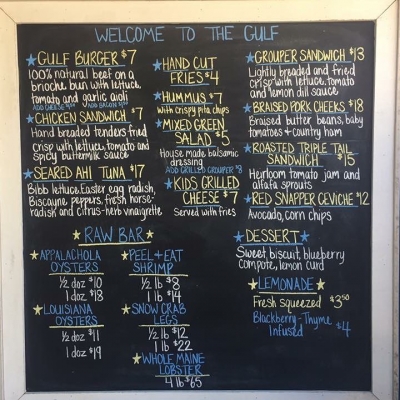 WELCOME TO THE GULF
GULF BURGER $7
100% natural beef on a
brioche bun with lettuce,
tomato and garlic aioli
ADD CHEESE ADD BACON
CHICKEN SANDWICH $7
Hand breaded tenders fried
crisp with lettuce, tomato and
spicy buttermilk sauce
SEARED AHI TUNA $17
Bibb lettuce, Easter egg radish,
Biscayne peppers, fresh horse-
radish and citrus-herb vinaigrette
HAND CUT
FRIES $4
HUMMUS $7
with crispy pita chips
MIXED GREEN
SALAD $5
House made balsamic
dressing
ADD GRILLED GROUPER $8
KIDS GRILLED
CHEESE $7
Served with fries
GROUPER SANDWICH $13
Lightly breaded and fried
crisp with lettuce, tomato
and lemon dill sauce
BRAISED PORK CHEEKS $18
Braised butter beans, baby
tomatoes & country ham
ROASTED TRIPLE TAIL
SANDWICH $15
Heirloom tomato jam and
alfafa sprouts
RED SNAPPER CEVICHE $12
Avocado, corn chips
RAW BAR
APPALACHOLA
OYSTERS
1/2 doz $10
1 doz $18
LOUISIANA
OYSTERS
1/2 doz $11
1 doz $19
PEEL + EAT
SHRIMP
1/2 lb $8
1 lb $14
SNOW CRAB
LEGS
1/2 lb $12
1 lb $22
WHOLE MAINE
LOBSTER
4 lb $65
DESSERT
Sweet biscuit, blueberry
compote, lemon curd
LEMONADE
Fresh squeezed $3.50
Blackberry-Thyme
Infused $4